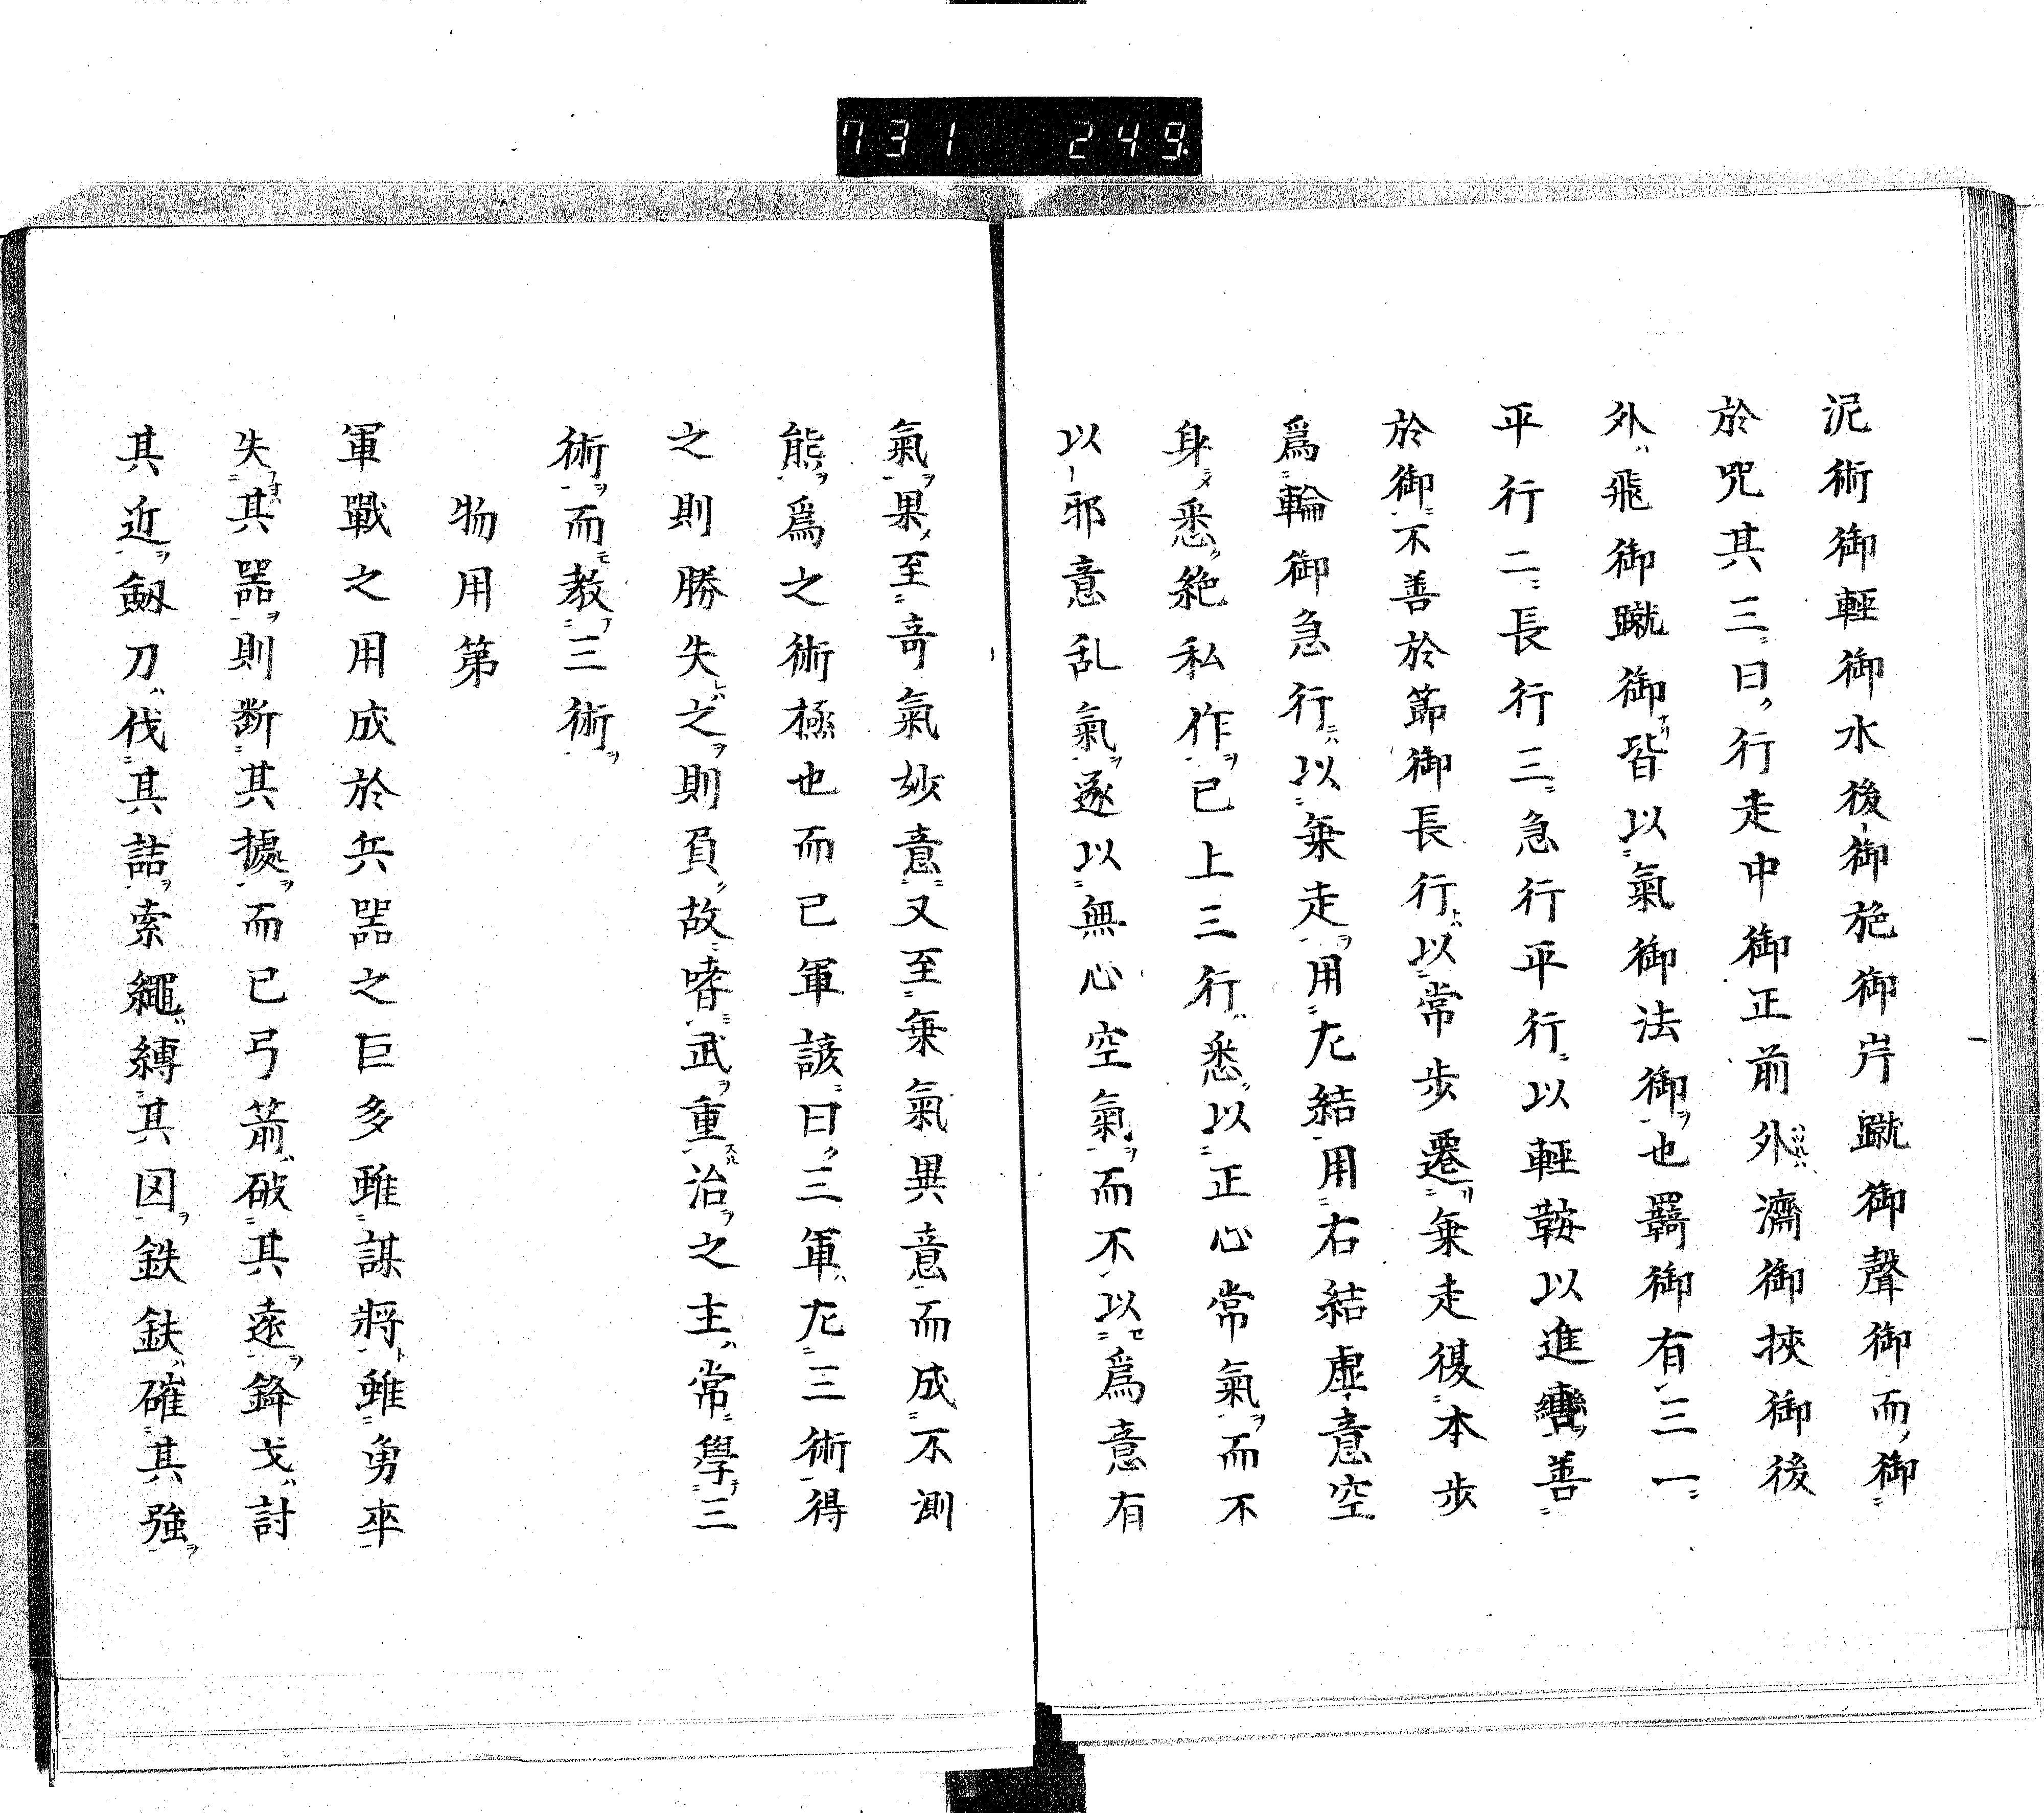 731 249
泥術御輕御水後御施御岸蹴御聲御而御
於咒其三曰行走中御正前外濟御挾御後
外飛御蹴御皆以氣御法御也羇御有三一
平行二長行三急行平行以輕鞍以進轡善
於御不善於節御長行以常步遷乗走復本步
爲輪御急行以乗走用左結用右結虛意空
身悉絶私作已上三行悉以正心常氣而不
以邪意乱氣遂以無心空氣而不以爲意有
氣果至竒氣妙意又至乗氣異意而成不測
熊爲之術極也而已軍諺曰三軍左三術得
之則勝失之則負故嗜武重治之主常學三
術而教三術
物用第
軍戰之用成於兵噐之巨多雖謀將雖勇卒
失其噐則断其據而已弓箭破其遠鋒戈討
其近劔刀伐其詰索繩縛其囚鉄鈇確其強